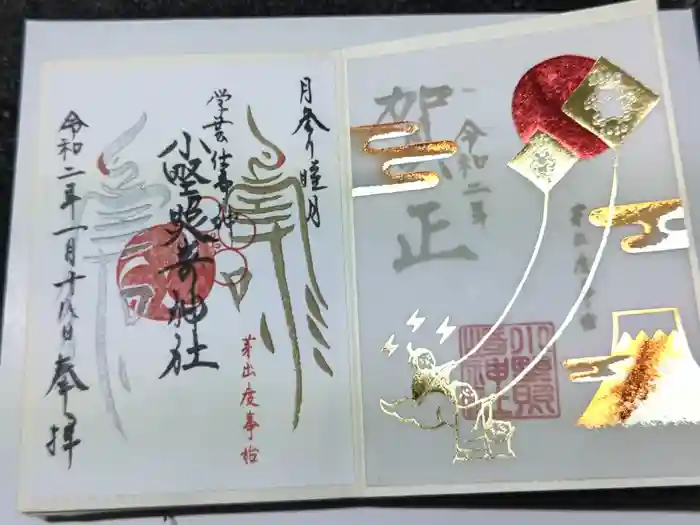 月参り睦月
学芸仕事の神
小野照崎神社
芽出度事始
令和二年一月十八日奉拝
賀正
令和二年
芽出度事始
小野照崎神社